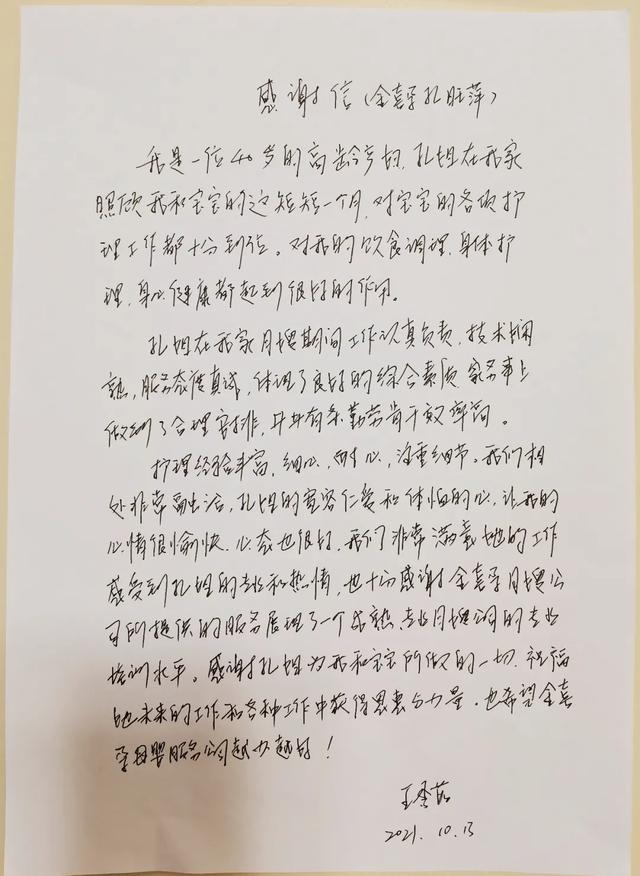 感谢信（金喜孕孔旺萍）
我是一位40岁的高龄产妇，孔姐在我家
照顾我和宝宝的这短短一个月，对宝宝的各项护
理工作都十分到位。对我的饮食调理，身体护
理，身心健康都起到很好的作用。
孔姐在我家月嫂期间工作认真负责，技术娴
熟，服务态度真诚，体现了良好的综合素质，家务事上
做到了合理安排，井井有条，勤劳肯干效率高。
护理经验丰富，细心，耐心，注重细节。我们相
处非常融洽，孔姐的宽容仁爱和体恤的心，让我的
心情很愉快，心态也很好，我们非常满意她的工作
感受到孔姐的专业和热情，也十分感谢金喜孕月嫂公
司所提供的服务展现了一个成熟、专业月嫂公司的专业
培训水平。感谢孔姐为我和宝宝所做的一切，祝福
她未来的工作和各种工作中获得恩惠与力量，也希望金喜
孕母婴服务公司越办越好！
王
2021.10.13